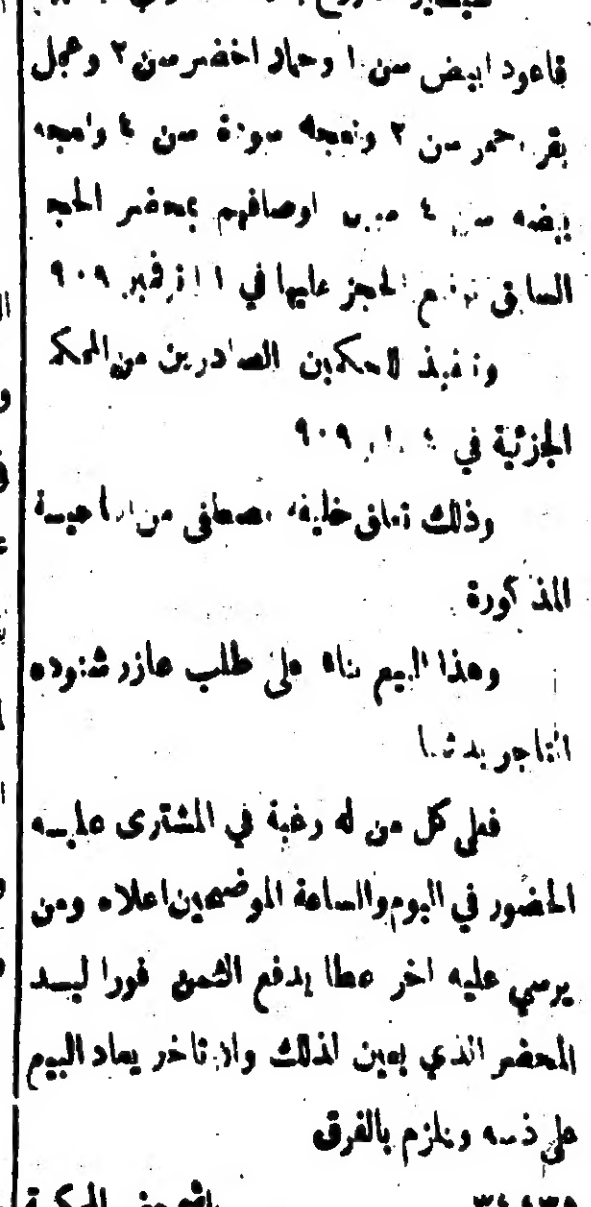 قاعود ابيض سن ١ وحمار اخضر سن ٢ وعجل
بقر احمر سن ٢ ونعجه سودة سن ٤ ونعجه
بيضه سن ٤ مبين اوصافهم بمحضر الحجز
السابق توقيع الحجز عليها في ١١ نوفمبر ٩٠٩
وتنفيذ للحكمين الصادرين من المحكمة
الجزئية في ٩٠٩
وذلك تعلق خليفه مصطفى من الناحية
المذكورة
وهذا البيع بناء على طلب عازر شنوده
التاجر بدشنا
فعلى كل من له رغبة في المشترى عليه
الحضور في اليوم والساعة الموضحين اعلاه ومن
يرسي عليه اخر عطا يدفع الثمن فورا ليد
المحضر الذي يعين لذلك وان تاخر يعاد البيع
على ذمته ويلزم بالفرق